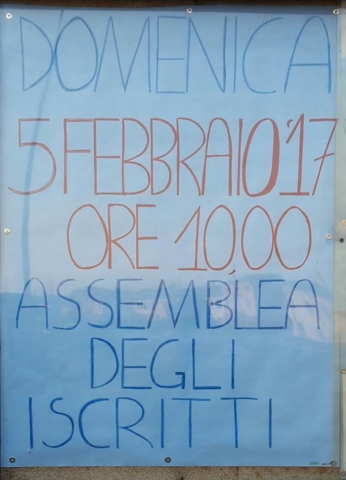 DOMENICA
5 FEBBRAIO '17
ORE 10,00
ASSEMBLEA
DEGLI
ISCRITTI